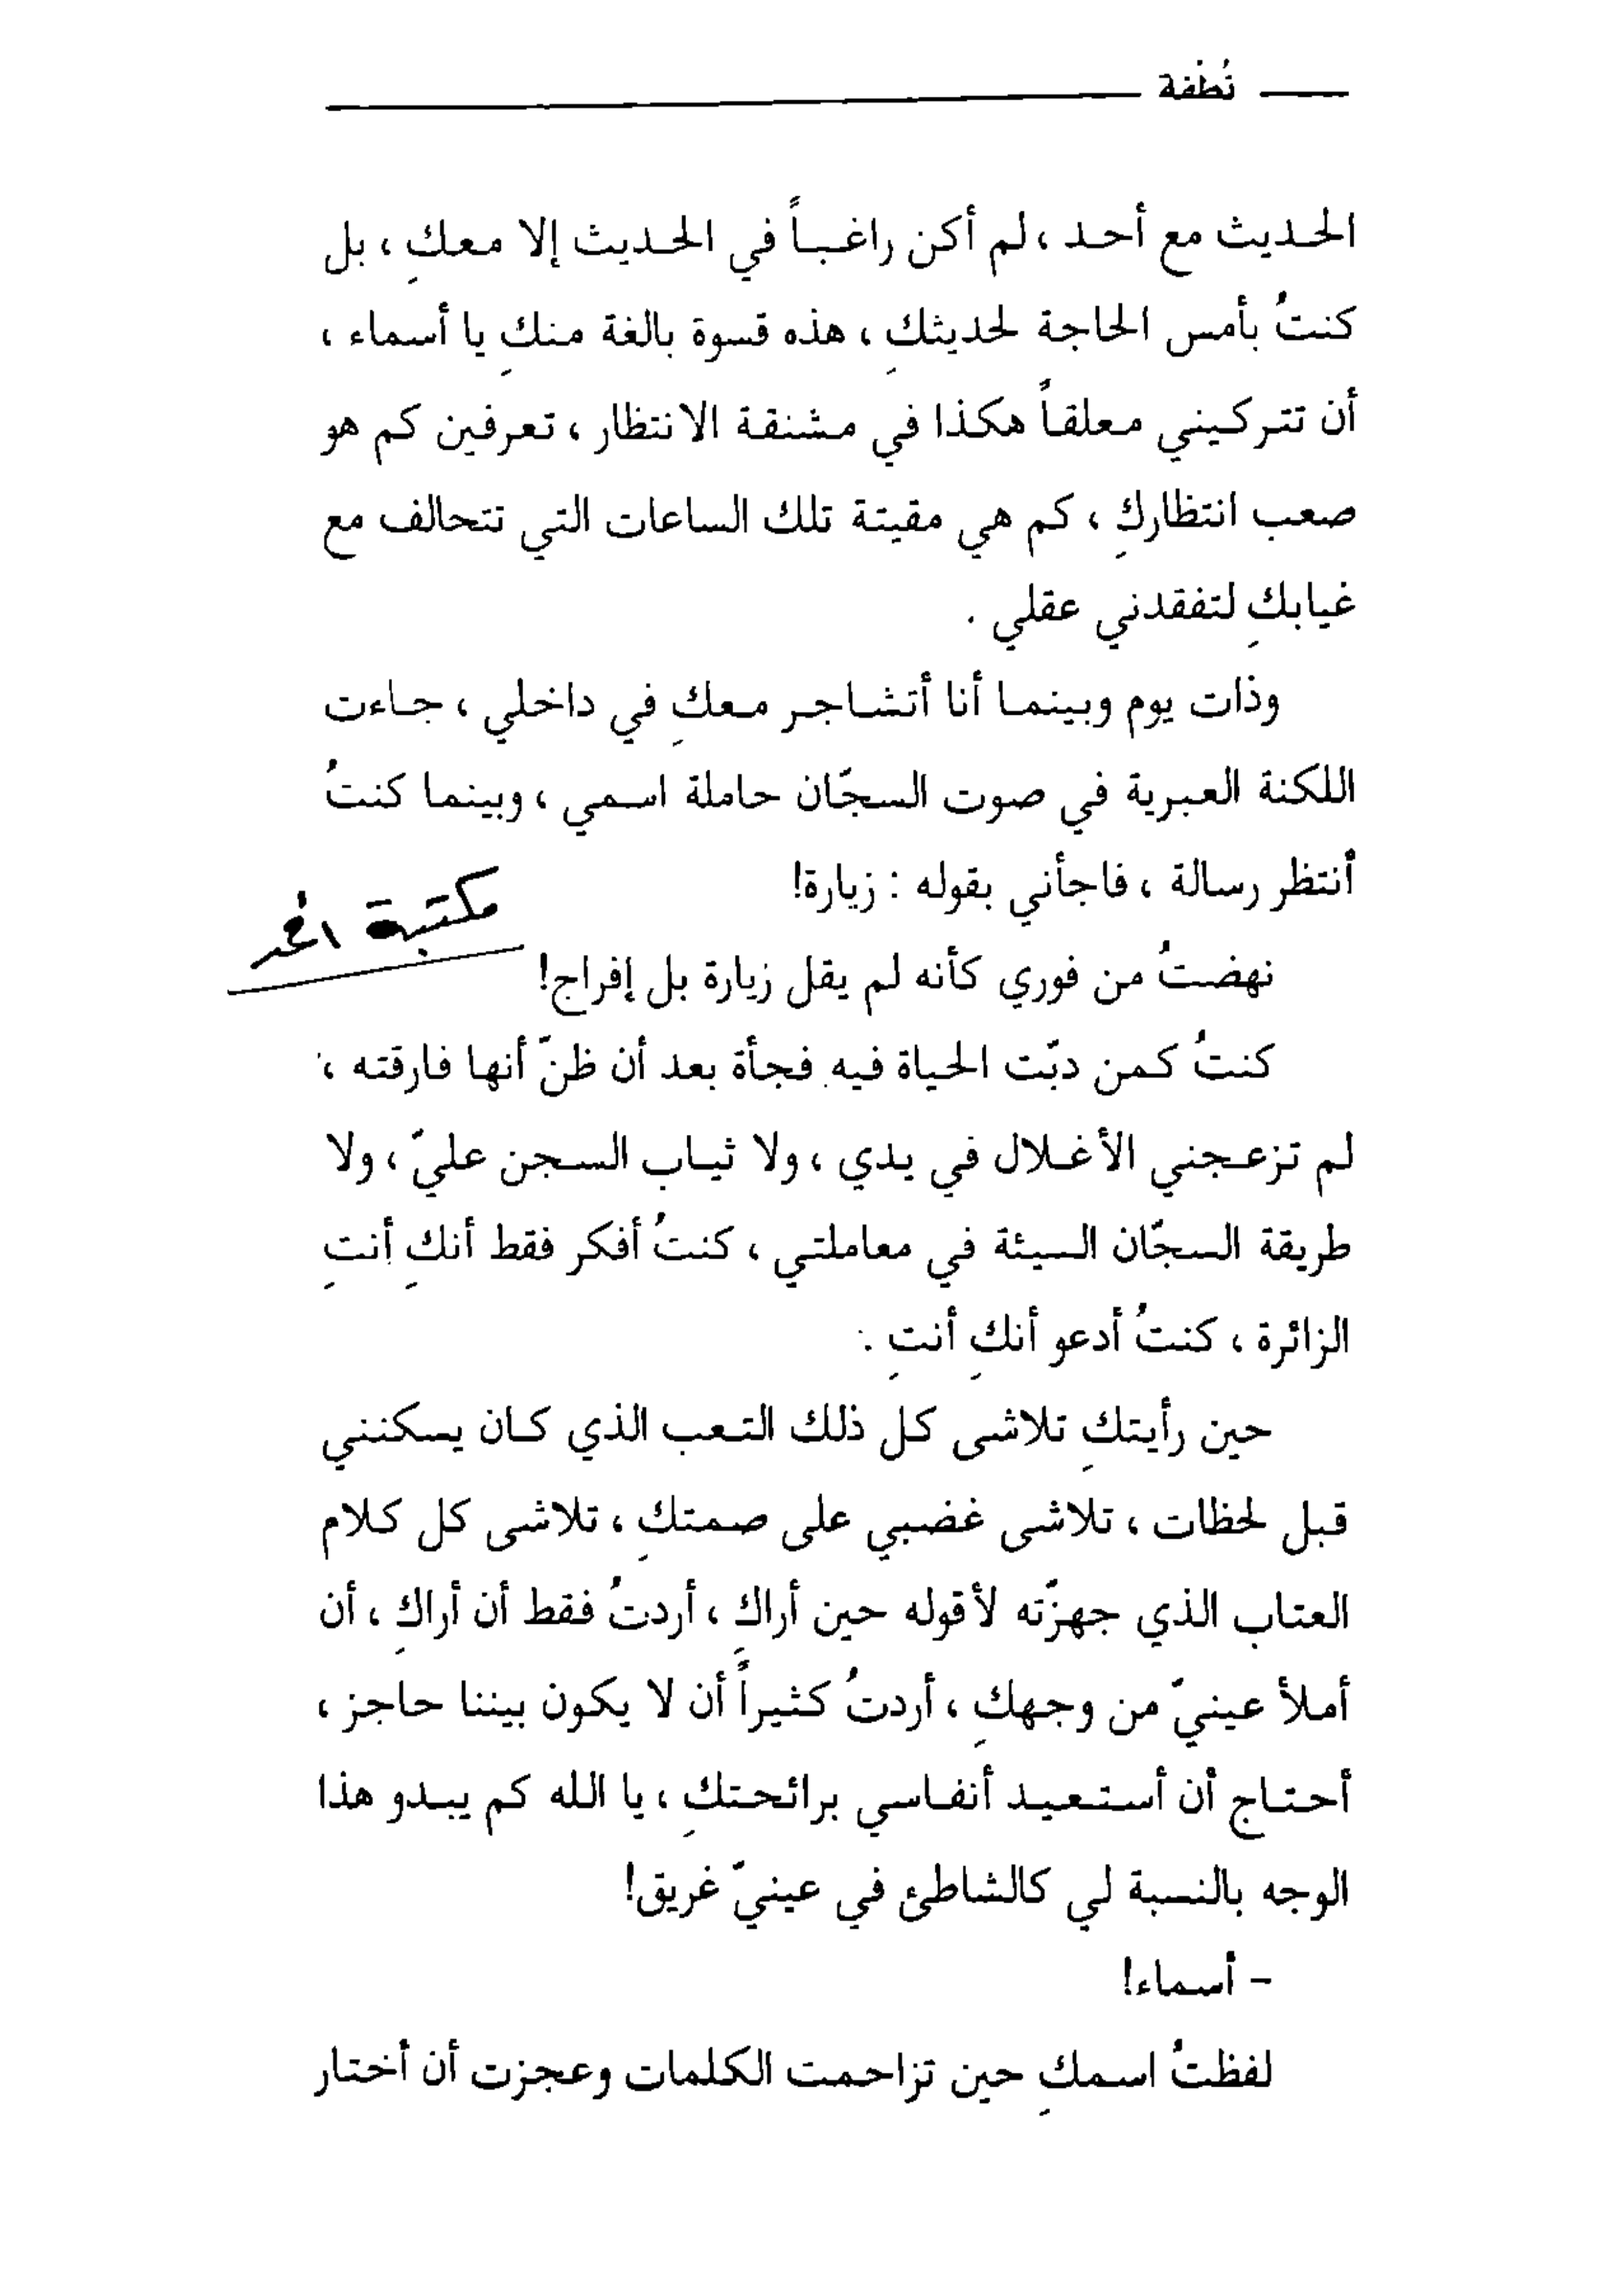 نُطفة
الحديث مع أحد ، لم أكن راغباً في الحديث إلا معكِ ، بل
كنتُ بأمس الحاجة لحديثكِ ، هذه قسوة بالغة منكِ يا أسماء ،
أن تتركيني معلقاً هكذا في مشنقة الانتظار ، تعرفين كم هو
صعب انتظاركِ ، كم هي مقيتة تلك الساعات التي تتحالف مع
غيابكِ لتفقدني عقلي .
وذات يوم وبينما أنا أتشاجر معكِ في داخلي ، جاءت
اللكنة العبرية في صوت السجّان حاملة اسمي ، وبينما كنتُ
أنتظر رسالة ، فاجأني بقوله : زيارة!
مكتبة
نهضتُ من فوري كأنه لم يقل زيارة بل إفراج!
كنتُ كمن دبّت الحياة فيه فجأة بعد أن ظنّ أنها فارقته ،
لم تزعجني الأغلال في يدي ، ولا ثياب السجن عليّ ، ولا
طريقة السجّان السيئة في معاملتي ، كنتُ أفكر فقط أنكِ أنتِ
الزائرة ، كنتُ أدعو أنكِ أنتِ .
حين رأيتكِ تلاشى كل ذلك التعب الذي كان يسكنني
قبل لحظات ، تلاشى غضبي على صمتكِ ، تلاشى كل كلام
العتاب الذي جهزّته لأقوله حين أراكِ ، أردتُ فقط أن أراكِ ، أن
أملأ عينيّ من وجهكِ ، أردتُ كثيراً أن لا يكون بيننا حاجز ،
أحتاج أن أستعيد أنفاسي برائحتكِ ، يا الله كم يبدو هذا
الوجه بالنسبة لي كالشاطئ في عينيّ غريق!
– أسماء!
لفظتُ اسمكِ حين تزاحمت الكلمات وعجزت أن أختار